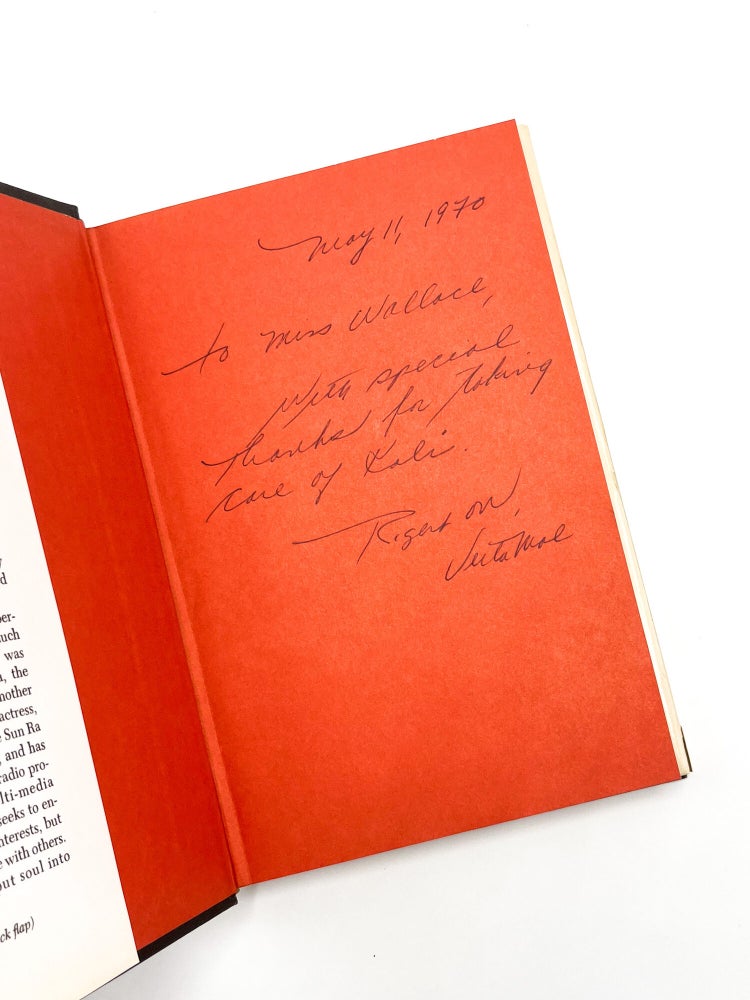 May 11, 1970
To Miss Wallace,
With special
thanks for taking
care of Kali.
Right on,
VertaMae
d
per-
uch
was
, the
mother
actress,
Sun Ra
, and has
radio pro-
lti-media
seeks to en-
nterests, but
e with others.
out soul into
ck flap)